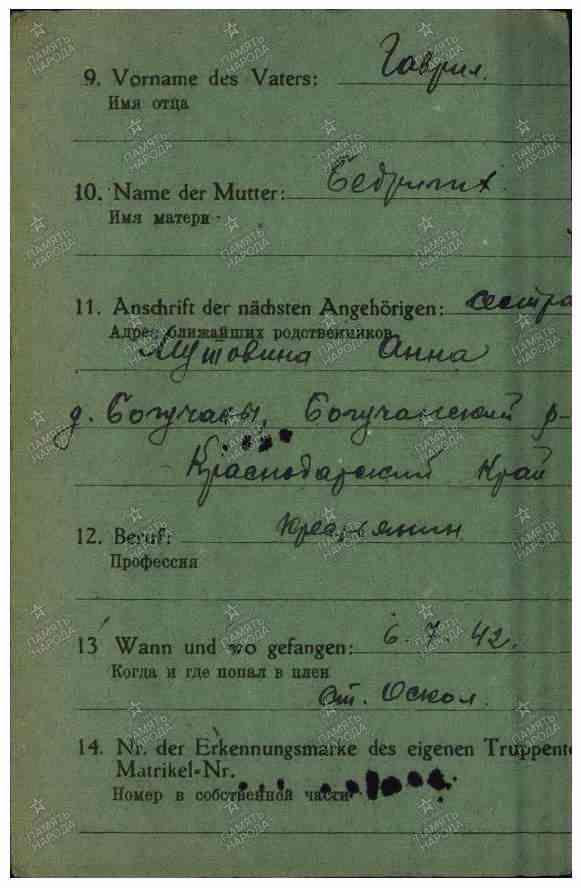 9. Vorname des Vaters: Гаврил.
Имя отца
10. Name der Mutter: Бедритих
Имя матери
11. Anschrift der nächsten Angehörigen: сестра
Адрес ближайших родственников
Анна
д. Богучаны, Богучанский р-
Краснодарский Край
12. Beruf: крестьянин
Профессия
13 Wann und wo gefangen: 6. 7 42.
Когда и где попал в плен
Ст. Оскол.
14. Nr. der Erkennungsmarke des eigenen Truppente
Matrikel-Nr.
Номер в собственной части